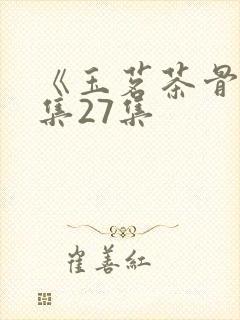 《玉茗茶骨
集27集
崔善红